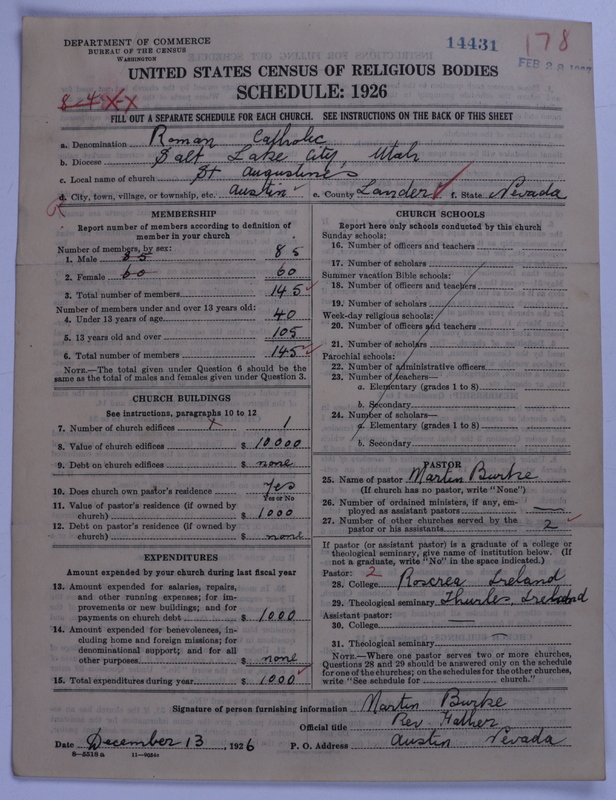 DEPARTMENT OF COMMERCE
BUREAU OF THE CENSUS
WASHINGTON
14431
178
FEB 28
UNITED STATES CENSUS OF RELIGIOUS BODIES
SCHEDULE: 1926
8-4 X-X
FILL OUT A SEPARATE SCHEDULE FOR EACH CHURCH. SEE INSTRUCTIONS ON THE BACK OF THIS SHEET
a. Denomination Roman Catholic
b. Diocese Salt Lake City, Utah
c. Local name of church St Augustines
d. City, town, village, or township, etc. Austin e. County Lander f. State Nevada
MEMBERSHIP
Report number of members according to definition of
member in your church
Number of members, by sex:
1. Male 85 85
2. Female 60 60
3. Total number of members 145
Number of members under and over 13 years old:
4. Under 13 years of age 40
5. 13 years old and over 105
6. Total number of members 145
NOTE.—The total given under Question 6 should be
same as the total of males and females given under Question 3.
CHURCH BUILDINGS
See instructions, paragraphs 10 to 12
7. Number of church edifices 1
8. Value of church edifices $ 10000
9. Debt on church edifices $ none
10. Does church own pastor's residence Yes
Yes or No
11. Value of pastor's residence (if owned by
church) $ 1000
12. Debt on pastor's residence (if owned by
church) $ none
EXPENDITURES
Amount expended by your church during last fiscal year
13. Amount expended for salaries, repairs,
and other running expenses; for im-
provements or new buildings; and for
payments on church debt $ 1000
14. Amount expended for benevolences, in-
cluding home and foreign missions; for
denominational support; and for all
other purposes $ none
15. Total expenditures during year $ 1000
CHURCH SCHOOLS
Report here only schools conducted by this church
Sunday schools:
16. Number of officers and teachers
17. Number of scholars
Summer vacation Bible schools:
18. Number of officers and teachers
19. Number of scholars
Week-day religious schools:
20. Number of officers and teachers
21. Number of scholars
Parochial schools:
22. Number of administrative officers
23. Number of teachers—
a. Elementary (grades 1 to 8)
b. Secondary
24. Number of scholars—
a. Elementary (grades 1 to 8)
b. Secondary
PASTOR
25. Name of pastor Martin Burke
(If church has no pastor, write "None")
26. Number of ordained ministers, if any, em-
ployed as assistant pastors —
27. Number of other churches served by the
pastor or his assistants 2
If pastor (or assistant pastor) is a graduate of a college or
theological seminary, give name of institution below. (If
not a graduate, write "No" in the space indicated.)
Pastor: 2
28. College Roscrea Ireland
29. Theological seminary Thurles, Ireland
Assistant pastor:
30. College —
31. Theological seminary —
NOTE.—Where one pastor serves two or more churches,
Questions 28 and 29 should be answered only on the schedule
for one of the churches; on the schedules for the other churches,
write "See schedule for church."
Signature of person furnishing information Martin Burke
Official title Rev. Father
Date December 13, 1926 P. O. Address Austin Nevada
8—5318a